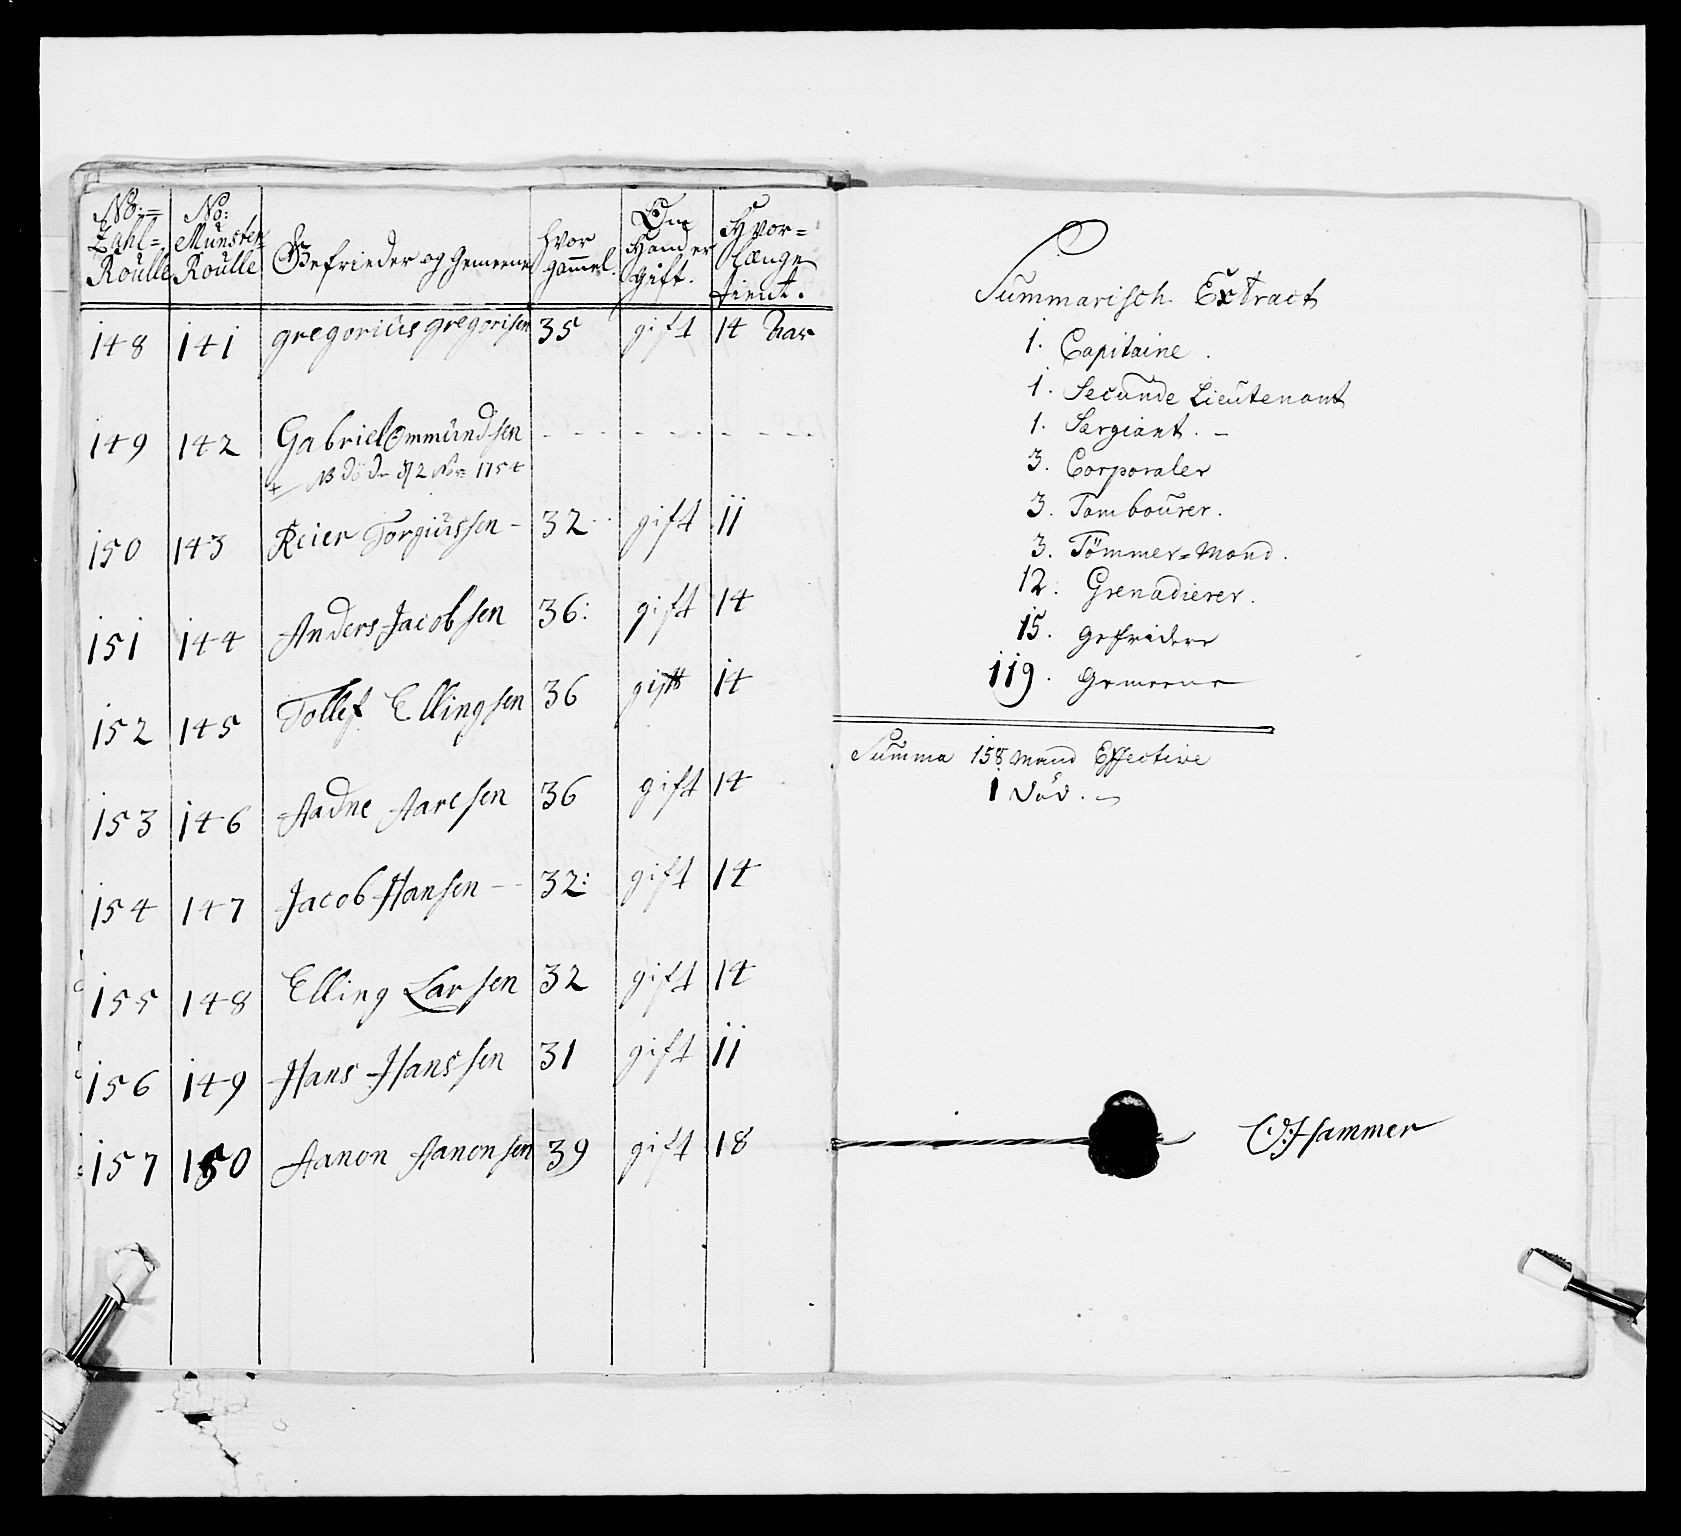 No: Zahl= Roulle | No: Munster= Roulle | Gefrieder og Gemeene | hvor gammel. | Om Hand er gift. | Hvor= længe tient.
148 141 gregorius gregorisen 35 gift 14 Aar
149 142 Gabriel Ommundsen - - - - - - - -
+ NB död 1754
150 143 Reier Torgiussen - 32 - - gift 11
151 144 Anders Jacobsen 36: gift 14
152 145 Tollef Ellingsen 36 gift 14
153 146 Aadne Aaresen 36 gift 14
154 147 Jacob Hansen - - 32: gift 14
155 148 Elling Larsen 32 gift 14
156 149 Hans Hanssen 31 gift 11
157 150 Aanon Aanonsen 39 gift 18
Summarisch Extract
1. Capitaine.
1. Secunde Lieutenant
1. Sergiant. -
3. Corporaler
3. Tambourer.
3. Tömmer=Mand.
12. Grenadierer.
15. Gefridere
119. Gemeene
Summa 158 Mand Effective
1 Död. -
Hammer